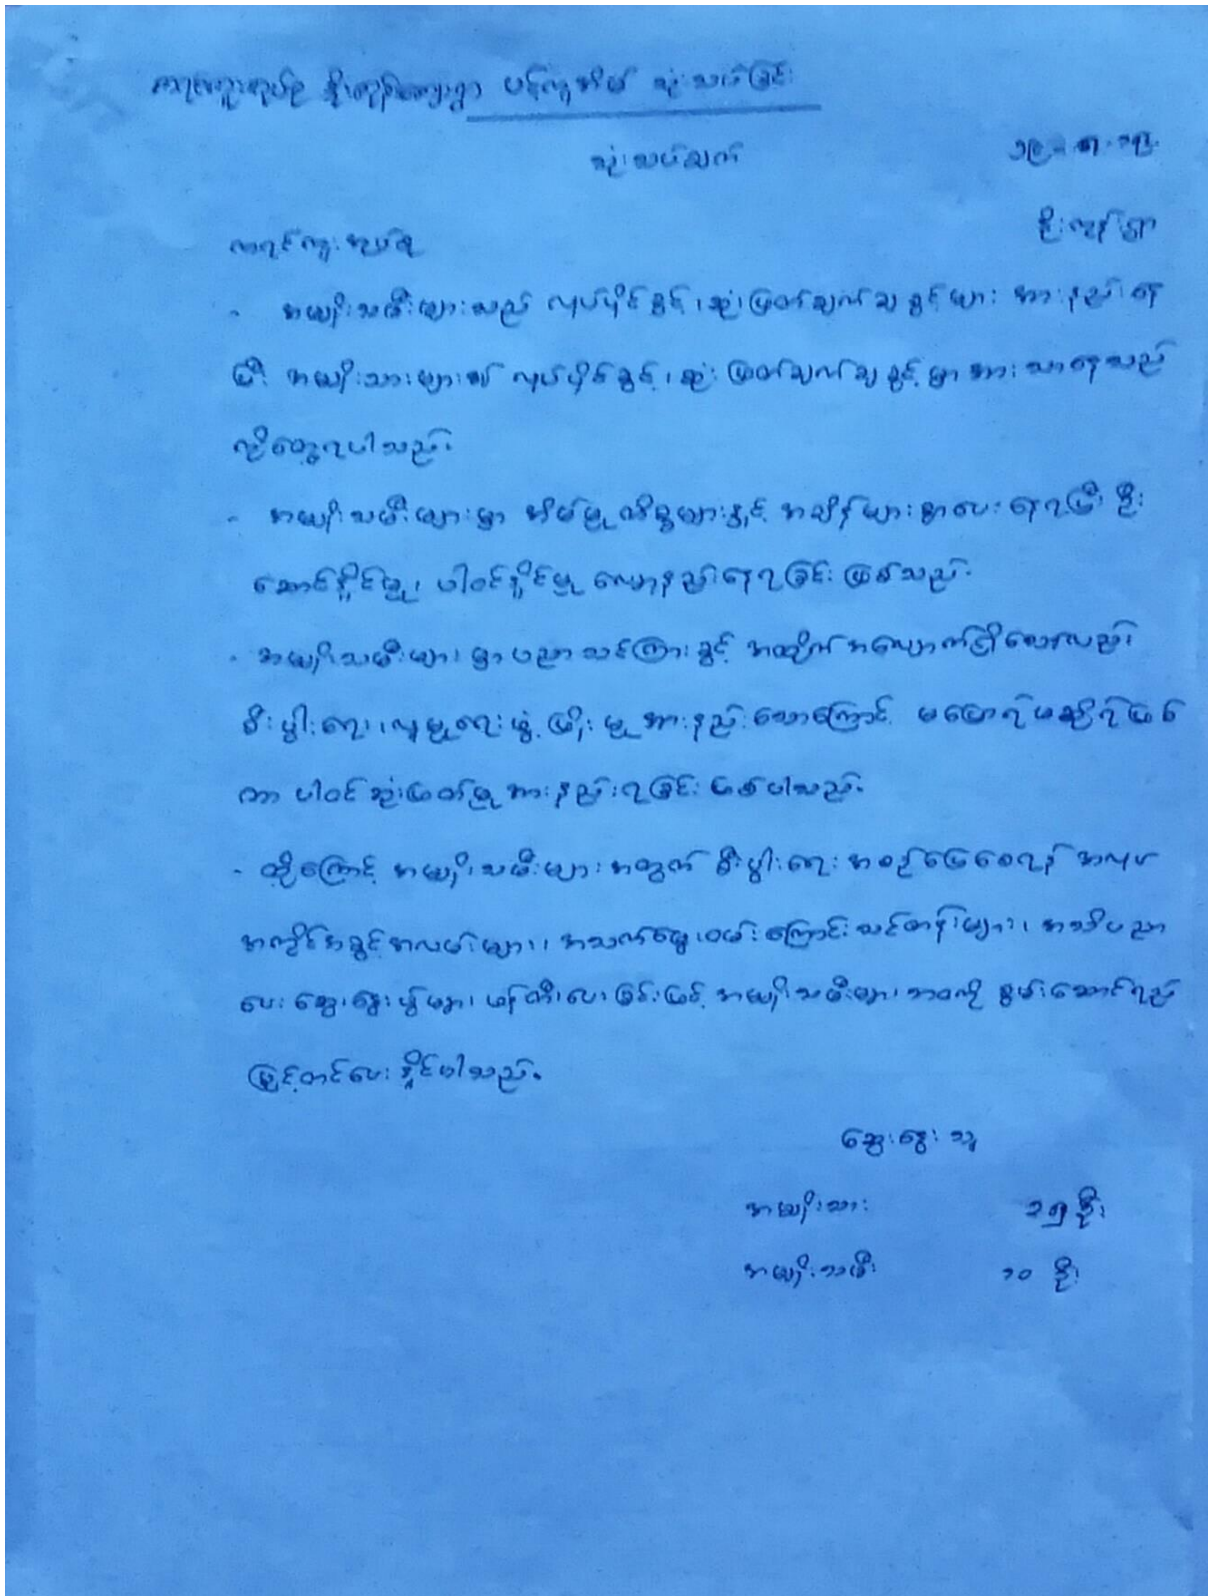 ပင်ကူအိမ် သုံးသပ်ခြင်း
သုံးသပ်ချက်
ကရင်ကူးအုပ်စု
- အမျိုးသမီးများသည် လုပ်ပိုင်ခွင့်၊ ဆုံးဖြတ်ချက်ချခွင့်များ အားနည်းနေ
ပြီး အမျိုးသားများ၏ လုပ်ပိုင်ခွင့်၊ ဆုံးဖြတ်ချက်ချခွင့်မှာ အားသာနေသည်
ကိုတွေ့ရပါသည်။
- အမျိုးသမီးများမှာ အိမ်မှုကိစ္စများနှင့် အချိန်များစွာပေးနေရပြီး ဦး
ဆောင်နိုင်မှု၊ ပါဝင်နိုင်မှု လျော့နည်းနေရခြင်း ဖြစ်သည်။
- အမျိုးသမီးများမှာ ပညာသင်ကြားခွင့် အထိုက်အလျောက်ရှိသော်လည်း
စီးပွါးရေး၊ လူမှုရေးဖွံ့ဖြိုးမှု အားနည်းသောကြောင့် မပြောရဲမဆိုရဲဖြစ်
ကာ ပါဝင်ဆုံးဖြတ်မှု အားနည်းရခြင်း ဖြစ်ပါသည်။
- ထို့ကြောင့် အမျိုးသမီးများအတွက် စီးပွါးရေး အစဉ်ပြေစေရန် အလုပ်
အကိုင်အခွင့်အလမ်းများ၊ အသက်မွေးဝမ်းကြောင်းသင်တန်းများ၊ အသိပညာ
ပေး ဆွေးနွေးပွဲများ ဖန်တီးပေးခြင်းဖြင့် အမျိုးသမီးများဘဝကို စွမ်းဆောင်ရည်
မြှင့်တင်ပေးနိုင်ပါသည်။
ဆွေးနွေးသူ
အမျိုးသား ၁၅ ဦး
အမျိုးသမီး ၁၀ ဦး